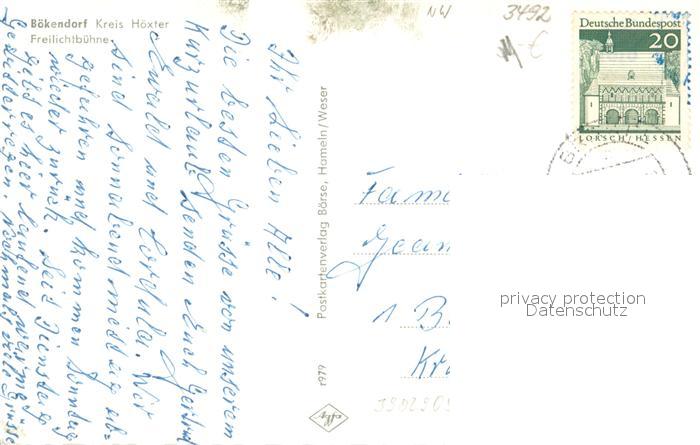 Bökendorf Kreis Höxter
Freilichtbühne
NW
3492
Deutsche Bundespost
20
LORSCH/HESSEN
Ihr Lieben Alle!
Die besten Grüsse von unserem
Kurzurlaub senden Euch Gertrud
Ewald und Cordula. Wir
sind Sonnabendmittag ab-
gefahren und kommen Sonntag
wieder zurück. Seit Dienstag
gibt es hier laufend
Postkartenverlag Börse, Hameln/Weser
1979
Fami
1 B
Kr
privacy protection
Datenschutz